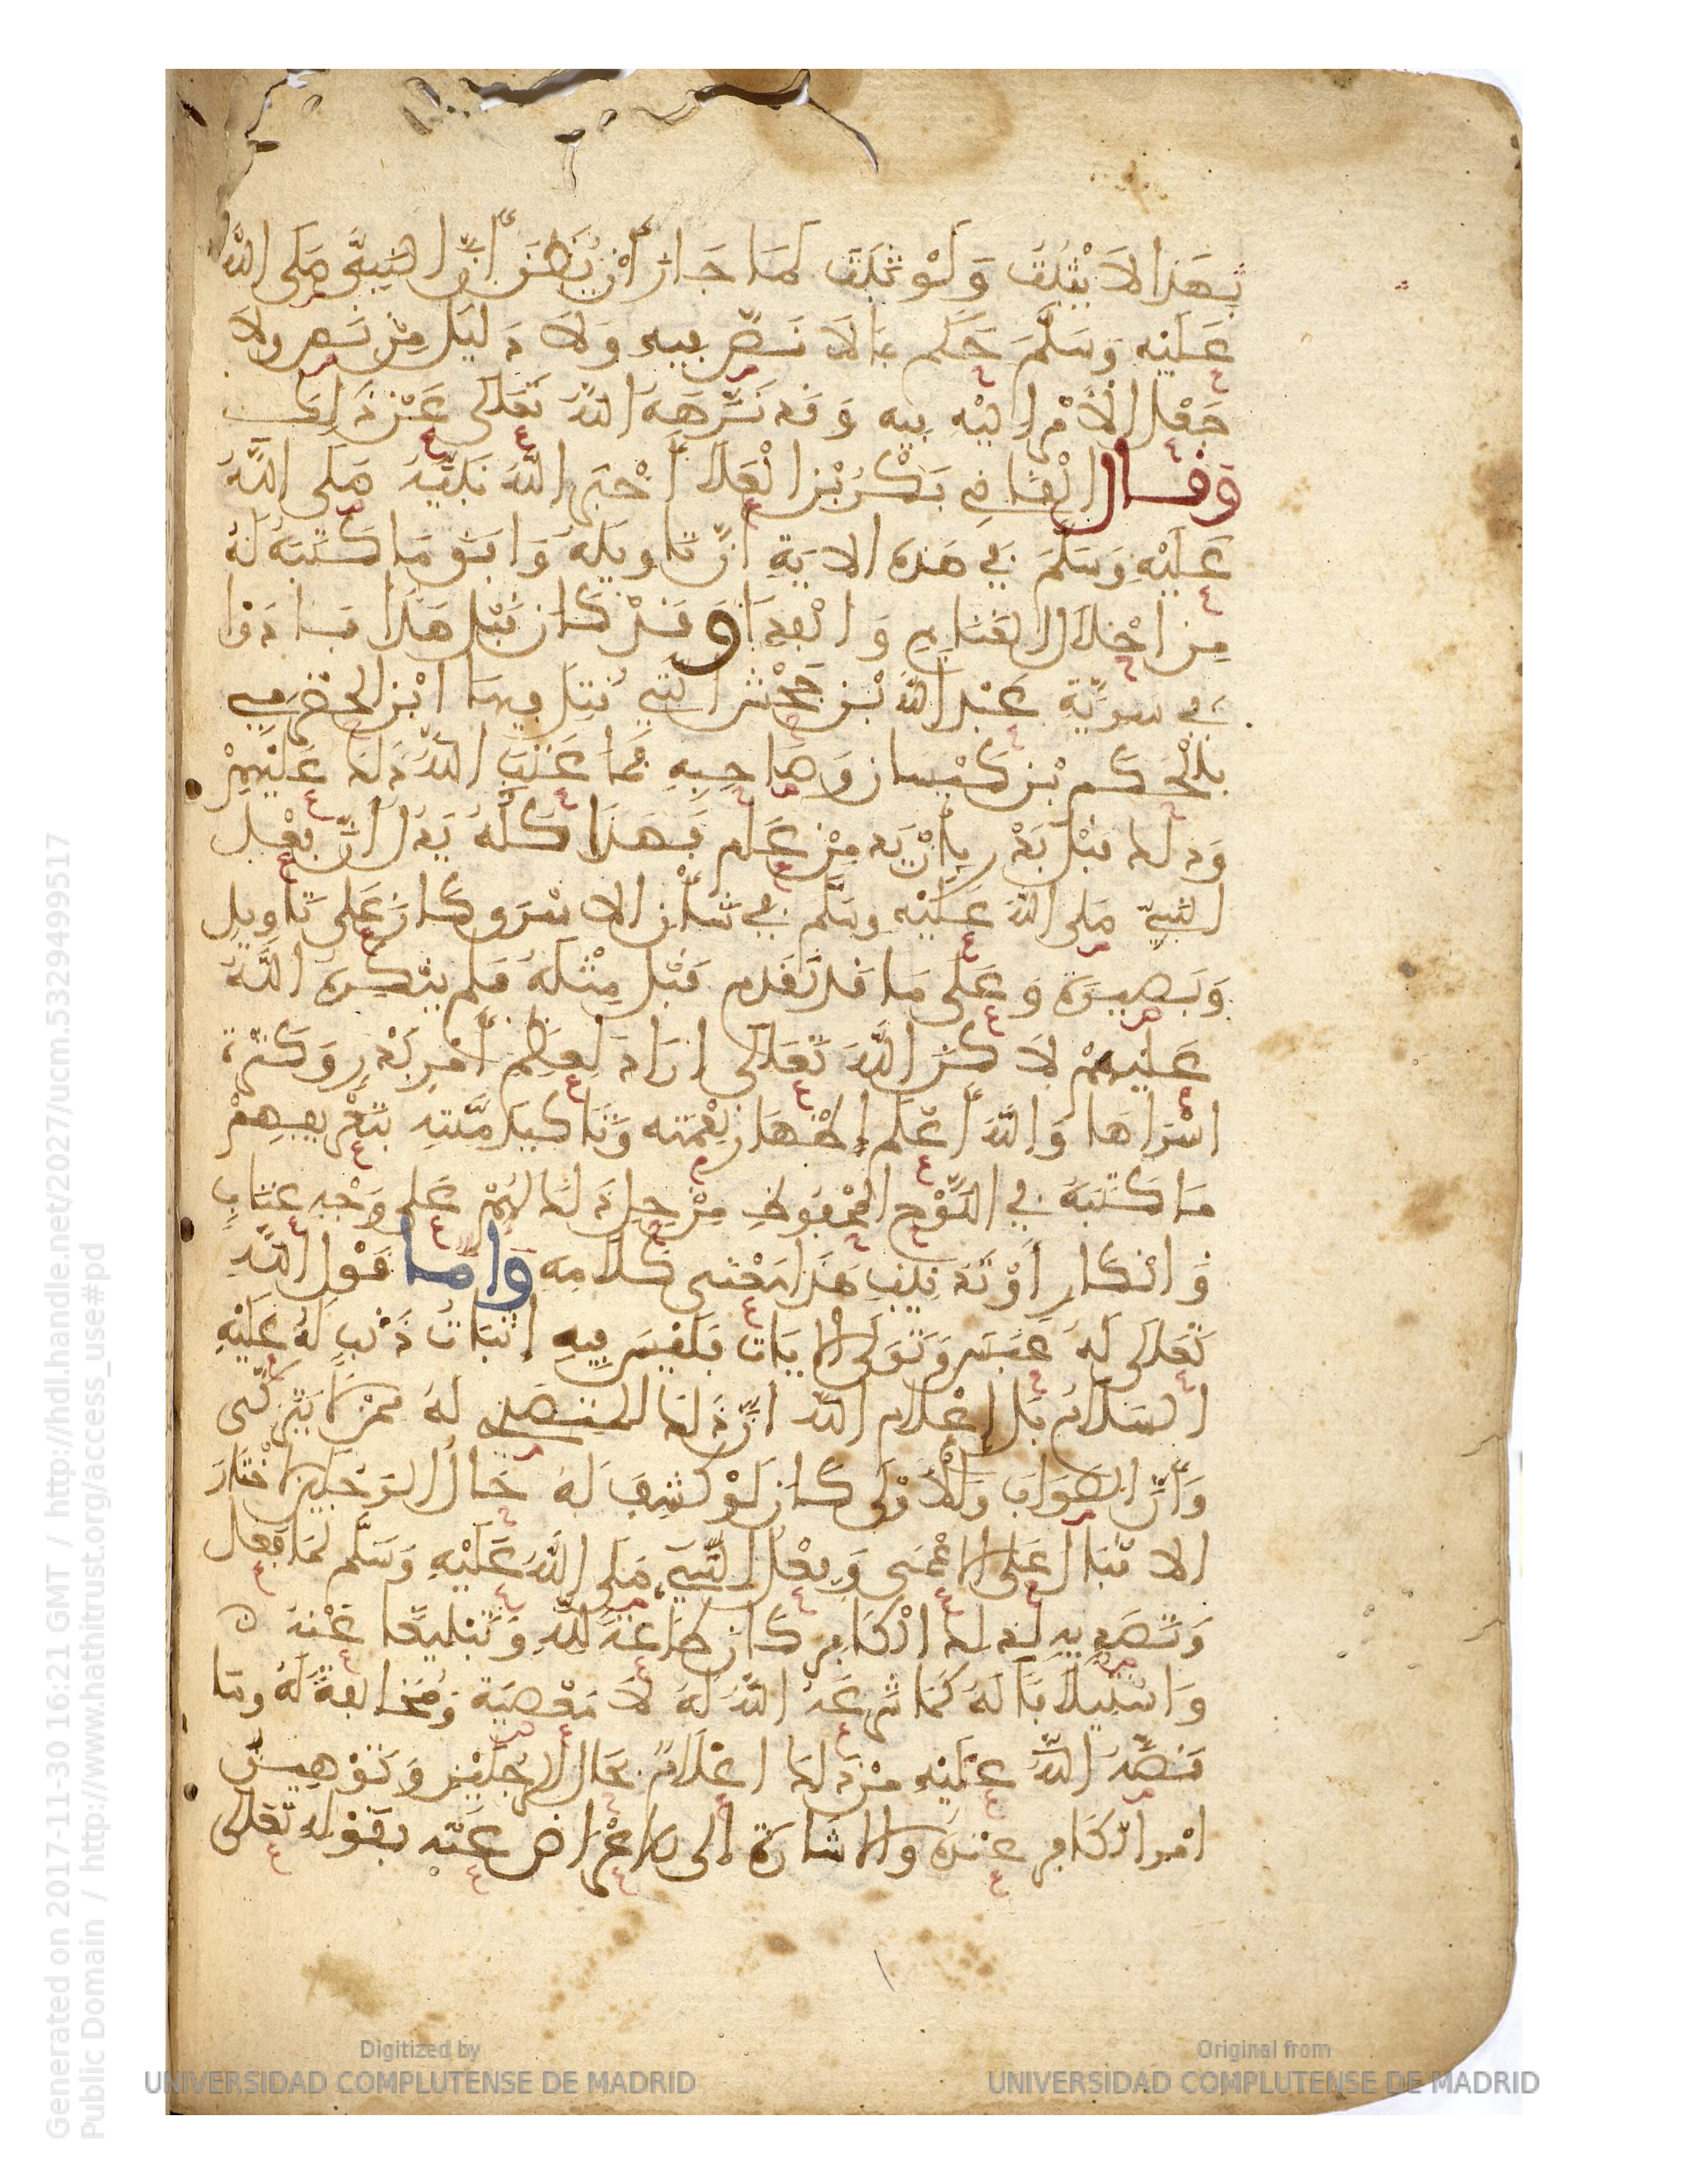 بِهَذا لاَ يَثْبُتُ وَلَوْ ثَبَتَ لَمَا جَازَ أَنْ يُظَنَّ أَنَّ النَّبِيَّ صَلَى اللهُ
عَلَيْهِ وَسَلَّمَ حَكَمَ بِمَا لاَ نَصَّ فِيهِ وَلاَ دَلِيلَ مِنْ نَصٍّ وَلاَ
جَعْلِ الْأَمْرِ إليْهِ فِيهِ وَقَد نَزَّهَهُ اللهُ تَعَالَى عَنْ ذَلِكَ
وَقَال الْقَاضِي بَكْرُ بْنُ الْعَلاَ أَخْبَرَ اللهُ نَبِيَّهُ صَلَى اللهُ
عَلَيْهِ وَسَلَّمَ فِي هَذِهِ الايَةِ انَّ تَاوِيلَهُ وَافَقَ مَا كَتَبَهُ لَهُ
مِن احْلاَلِ الغَنَايِمِ وَالْفِدَا وَقَدْ كَان قَبْلَ هَذَا فَادَوْا
فِي سَرِيَّةِ عَبْدِ الله بْنِ جَحْشٍ التِي قُتِلَ فِيهَا ابْنُ الحَضْرَمِي
بِالْحَكَمِ بْنِ كَيْسَان وَصَاحِبِهِ فَمَا عَتَبَ اللهُ ذَلِكَ عَلَيْهِمْ
وَذَلِكَ قَبْلَ بَدْرٍ بِأَزْيَدَ مِنْ عَامٍ فَهَذَا كُلُّهُ يَدُلُّ أَنَّ فِعْلَ
النَّبِيِّ صَلَى اللهُ عَلَيْهِ وسَلَّم فِي شَأْنِ الاسْرَى كَانَ عَلَى تَاوِيلٍ
وَبَصِيرَةٍ وَعَلَى مَا قَد تَقَدَّم قَبْلُ مِثْلُهُ فَلَم يُنْكِرْهُ اللهُ
عَلَيْهِمْ لاَكِنَّ اللهَ تَعَالَى ارَادَ لِعِظَمِ أَمْرِ بَدْرٍ وَكَثْرَةِ
اسْرَاهَا وَاللهُ أَعْلَمُ إِظْهَارَ نِعْمَتِه وَتَاكِيدَ مِنَّتِهِ بِتَعْرِيفِهِمْ
مَا كَتَبَهُ فِي اللَّوْحِ الْمَحْفُوظِ مِنْ حِلِّ ذَلِكَ لَهُمْ عَلَى وَجْهِ عِتَابٍ
وَانْكَارٍ أَوْ تَذنِيبٍ هَذَا مَعْنَى كَلاَمِهِ وَامَّا قَوْل اللهِ
تَعَالَى لَهُ عَبَسَ وَتَوَلَّى الايَات فَلَيْسَ فِيهِ إِثْبَاتُ ذَنْبٍ لَهُ عَلَيْهِ
السَّلاَمُ بَلْ إِعْلاَمُ اللهِ انَّ ذَلِكَ المُتَصَدَّى لَهُ مِمَّنْ لاَ يَتَزَكَّى
وَأَنَّ الصَّوَابَ وَالْأَوْلَى كَانَ لَوْ كُشِفَ لَهُ حَالُ الرَّجُلَيْنِ اخْتَارَ
الاقْبَالَ عَلَى الاعْمَى وَفِعْلُ النَّبِيِّ صَلَى اللهُ عَلَيْهِ وَسَلَّم لِمَا فَعَلَ
وَتَصَدِّيهِ لِذَلِكَ الْكَافِرِ كَانَ طَاعَةً لِلهِ وَتَبْلِيغًا عَنْهُ
وَاسْتِيلاَفًا لَهُ كَمَا شَرَعَهُ اللهُ لَهُ لاَ مَعْصِيَة وَمُخَالَفَةً لَهُ ومَا
قَصَّهُ اللهُ عَلَيْهِ مِنْ ذَلِكَ اعْلاَمٌ بِحَالِ الرَّجُلَيْنِ وَتَوْهِينُ
امْرِ الْكَافِرِ عِنْدَهُ وَالاشَارَةُ إلى الاعْرَاضِ عَنْهُ بِقَوْلِهِ تَعَالَى
Generated on 2017-11-30 16:21 GMT / http://hdl.handle.net/2027/ucm.5329499517
Public Domain / http://www.hathitrust.org/access_use#pd
Digitized by
UNIVERSIDAD COMPLUTENSE DE MADRID
Original from
UNIVERSIDAD COMPLUTENSE DE MADRID